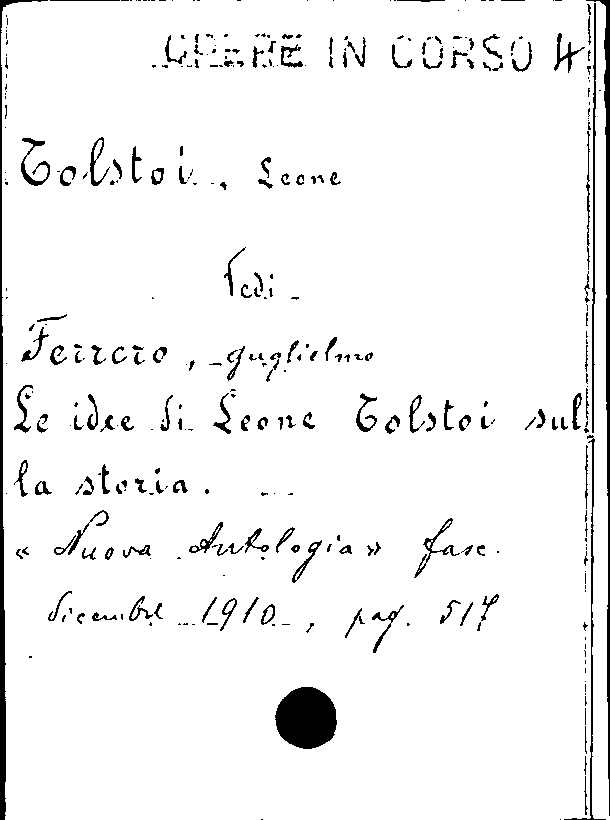 OPERE IN CORSO 4
Tolstoi, Leone
Vedi
Ferrero, guglielmo
Le idee di Leone Tolstoi sul
la storia.
« Nuova Antologia » fasc.
dicembre 1910, pag. 517